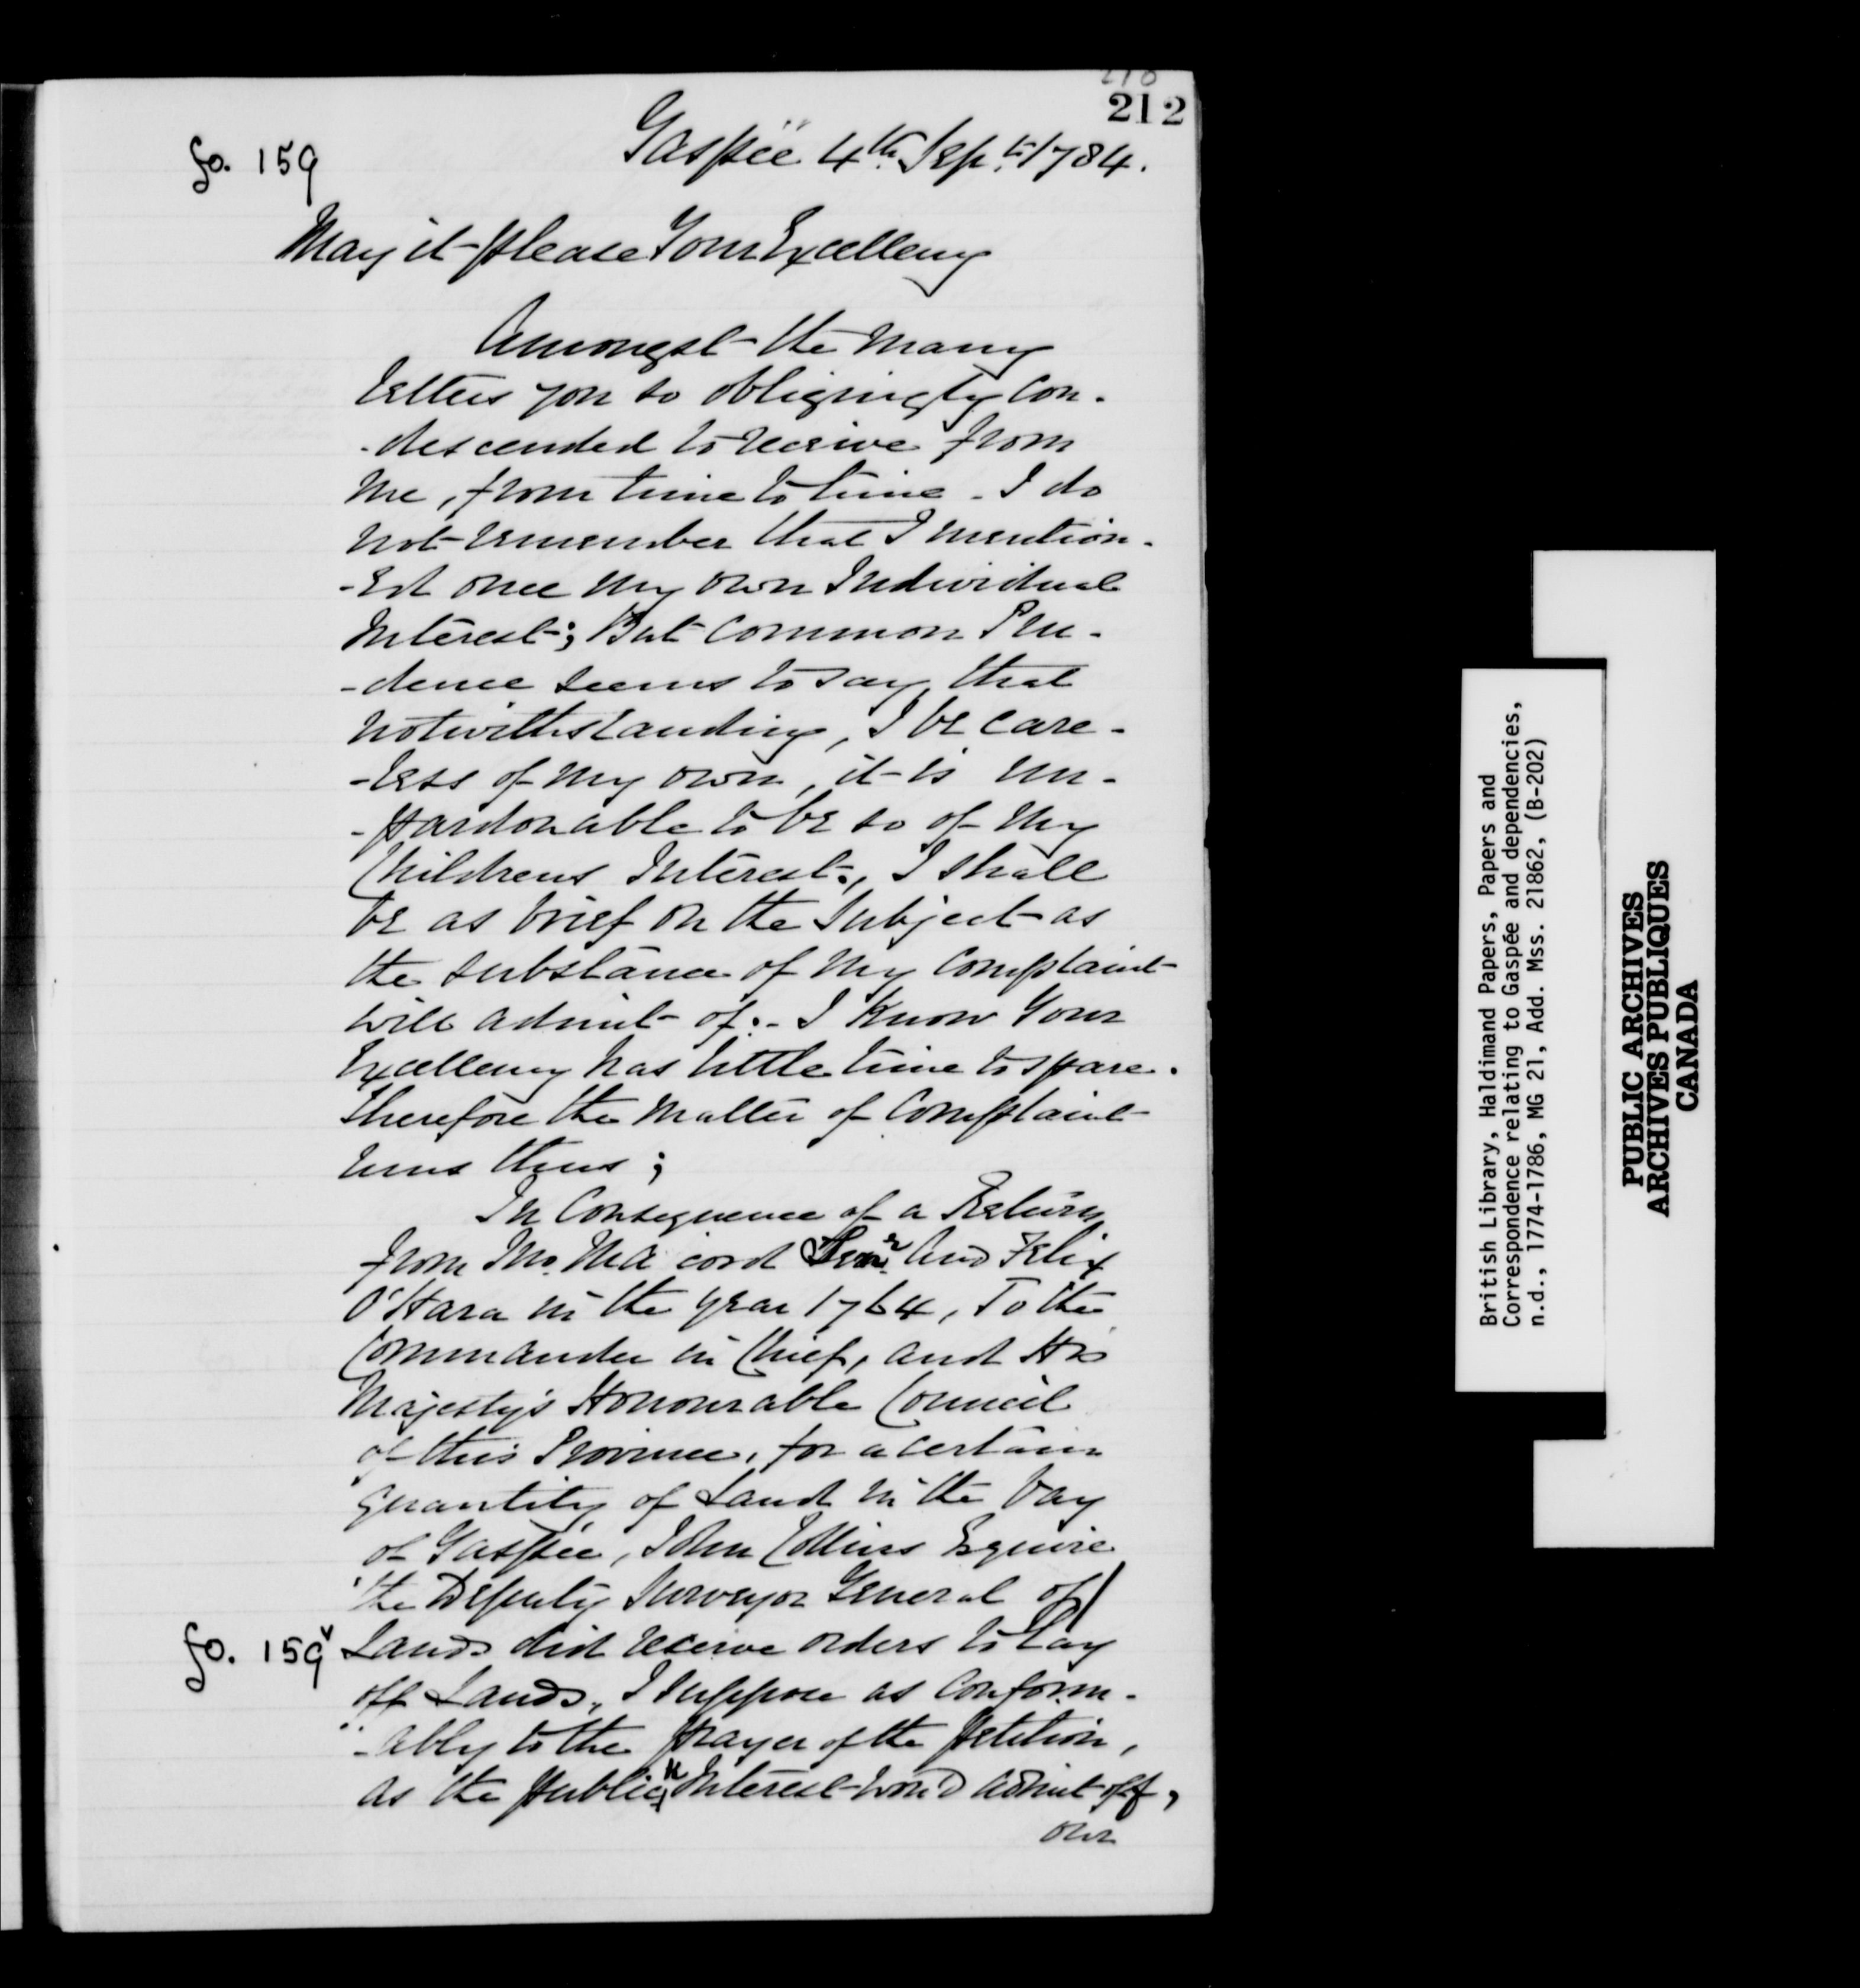 210
212
Gaspée 4th. Sepr. 1784.
fo. 159
May it please Your Excellency
Amongst the many
letters you so obligingly con-
-descended to receive from
me, from time to time - I do
not remember that I mention-
-ed once my own Individual
Interest; But common Pru-
-dence seems to say, that
notwithstanding, I be care-
-less of my own, it is un-
-pardonable to be so of my
Childrens Interest., I shall
be as brief on the Subject as
the substance of my Complaint
will admit of:- I know Your
Excellency has little time to spare.
therefore the matter of Complaint
runs thus;
In Consequence of a Return
from Thos. McCord Senr. and Felix
O'Hara in the year 1764, To the
Commander in Chief, and His
Majesty's Honourable Council
of this Province, for a certain
quantity of Land in the bay
of Gaspée, John Collins Esquire
the Deputy Surveyor General of/
fo. 159v Lands did receive orders to lay
off Lands, I suppose as conform-
-ably to the prayer of the petition,
as the public Interest wou'd admit off,
our
British Library, Haldimand Papers, Papers and
Correspondence relating to Gaspée and dependencies,
n.d., 1774-1786, MG 21, Add. Mss. 21862, (B-202)
PUBLIC ARCHIVES
ARCHIVES PUBLIQUES
CANADA